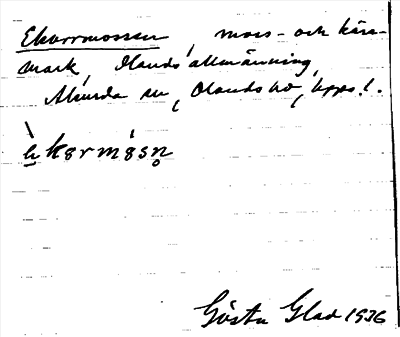 Ekorrmossen, moss- och kärr-
mark, Olands allmänning,
Alunda sn, Olands hd, Upps. l.
Gösta Glad 1936